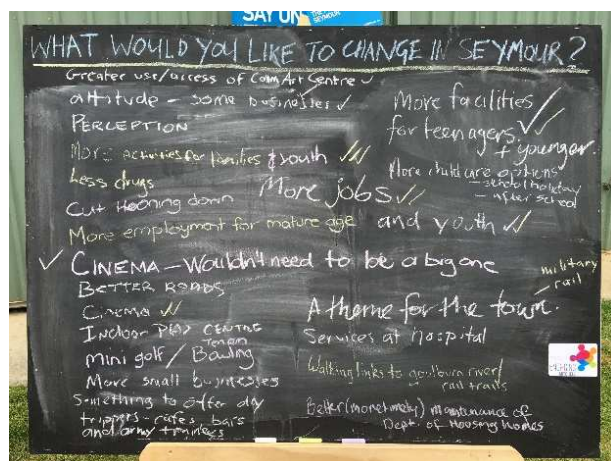 SAY ON
SEYMOUR
WHAT WOULD YOU LIKE TO CHANGE IN SEYMOUR?
Greater use/access of Comm Art Centre
attitude - some businesses
PERCEPTION
More activities for families & youth
Less drugs
Cut Hooning down
More jobs
More employment for mature age and youth
CINEMA - Wouldn't need to be a big one
BETTER ROADS
Cinema
INDOOR PLAY CENTRE
mini golf / Tenpin Bowling
More small businesses
Something to offer day
trippers - cafes, bars
and army trainees
More facilities
for teenagers
+ younger
More child care options
- school holiday
- after school
A theme for the town.
military
rail
Services at hospital
Walking links to goulburn river/
rail trails
Better (monetmety) maintenance of
Dept. of Housing homes